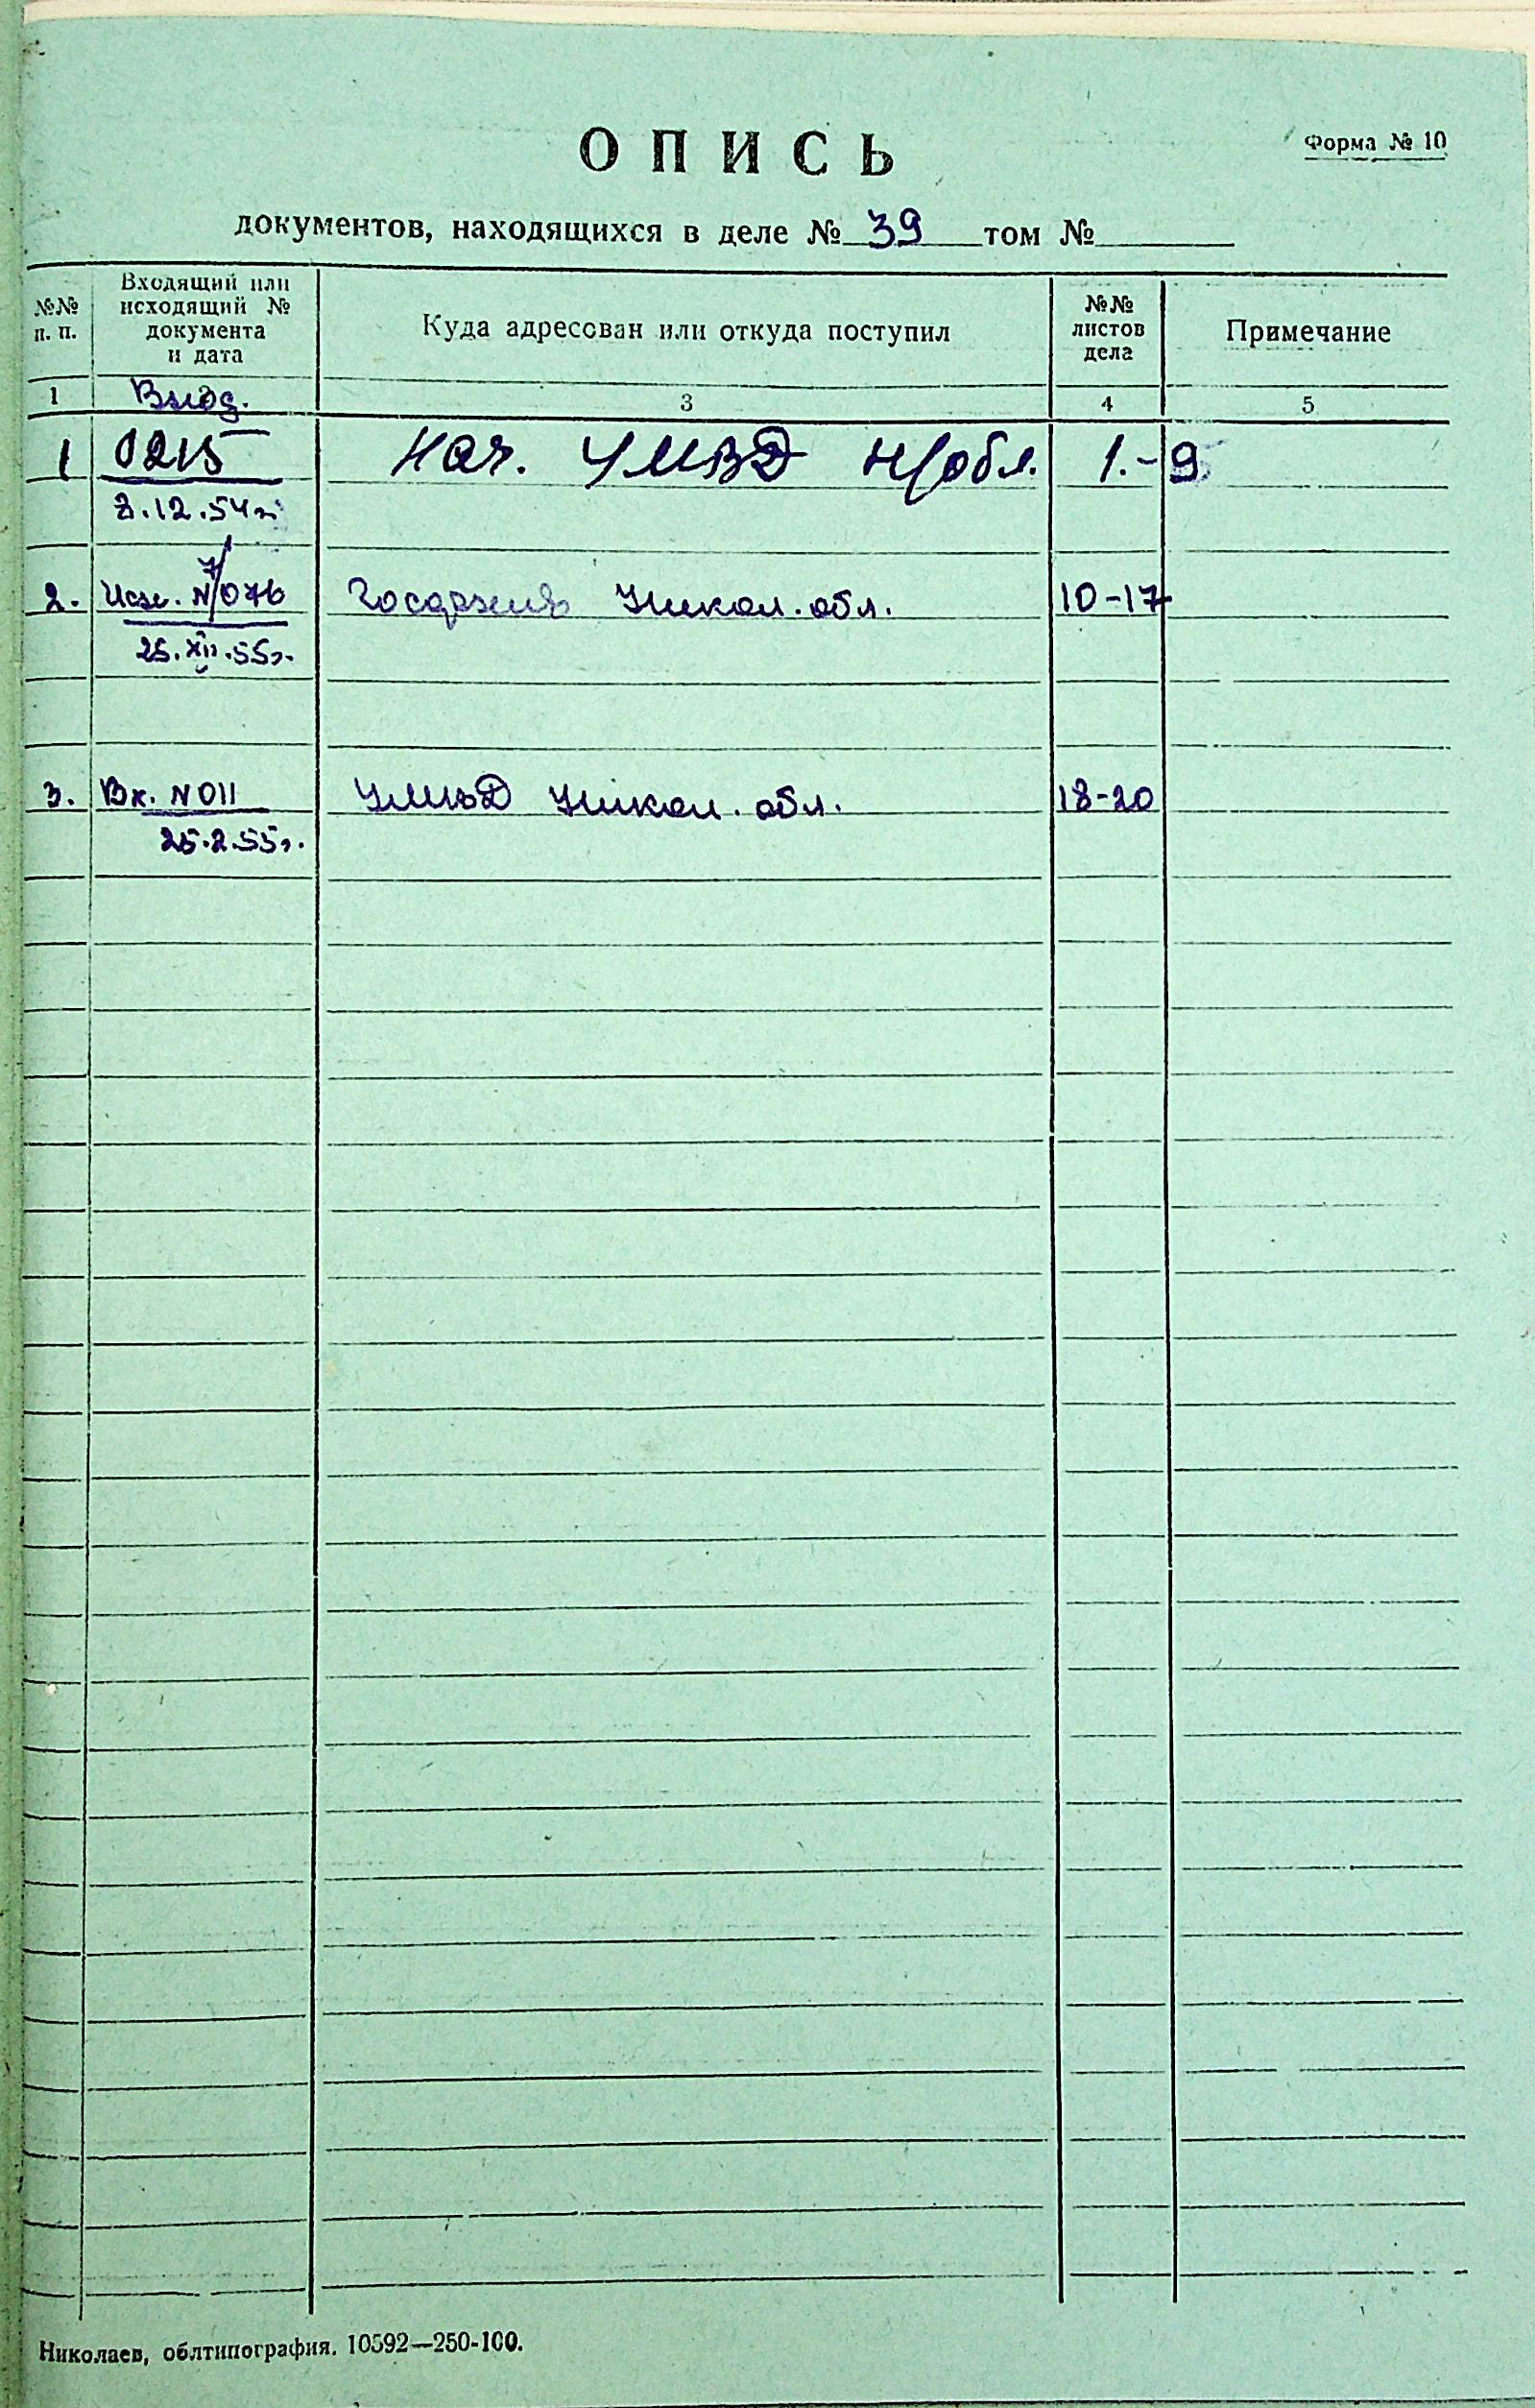 Форма № 10
ОПИСЬ
документов, находящихся в деле № 39 том №
№№ п. п.
Входящий или исходящий № документа и дата
Куда адресован или откуда поступил
№№ листов дела
Примечание
1 Вход. 3 4 5
1 0215 Нач. УМВД Н/обл. 1.-9
12.54г.
2. Исх. N 7/076 Госархив Никол. обл. 10-17
25.XII.55г.
3. Вх. N 011 УМВД Никол. обл. 18-20
25.2.55г.
Николаев, облтипография. 10592—250-100.